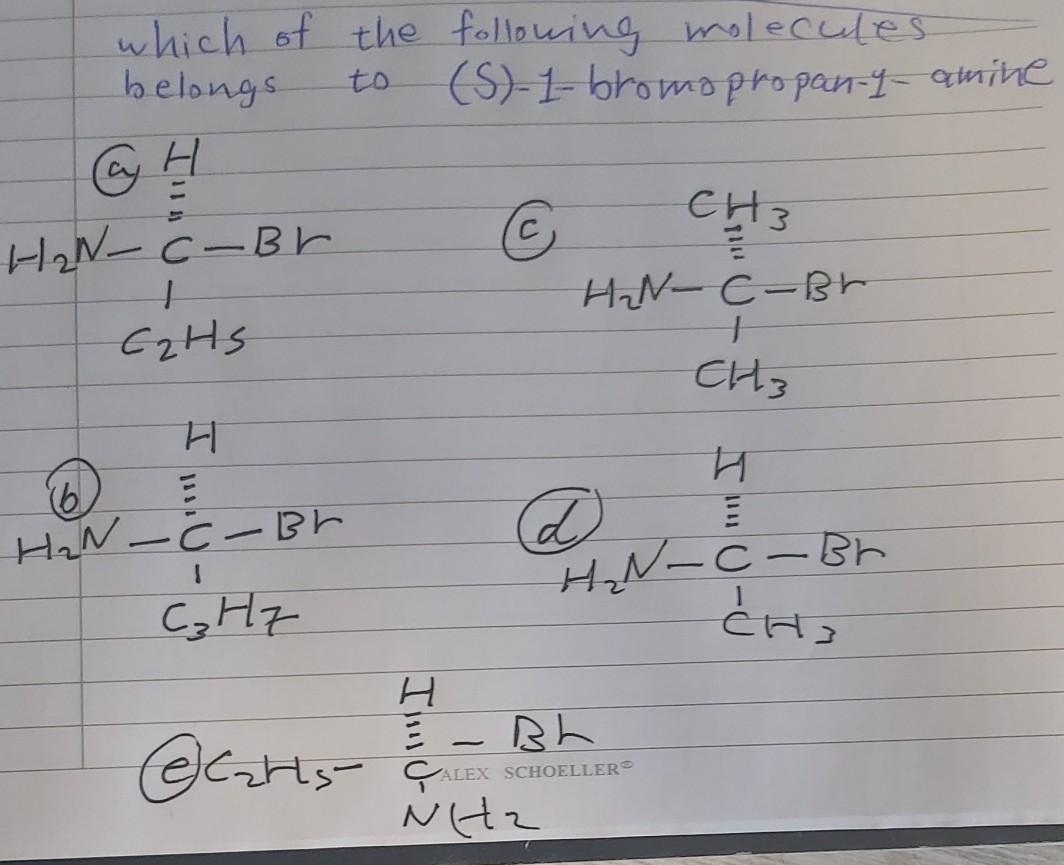 which of the following molecules
belongs to (S)-1-bromopropan-1-amine
(a) H
H₂N- C -Br
C₂H5
(c) CH₃
H₂N- C -Br
CH₃
(b) H
H₂N - C - Br
C₃H7
(d) H
H₂N - C - Br
CH₃
H
(e) C₂H5 - C - Br
ALEX SCHOELLER®
NH2